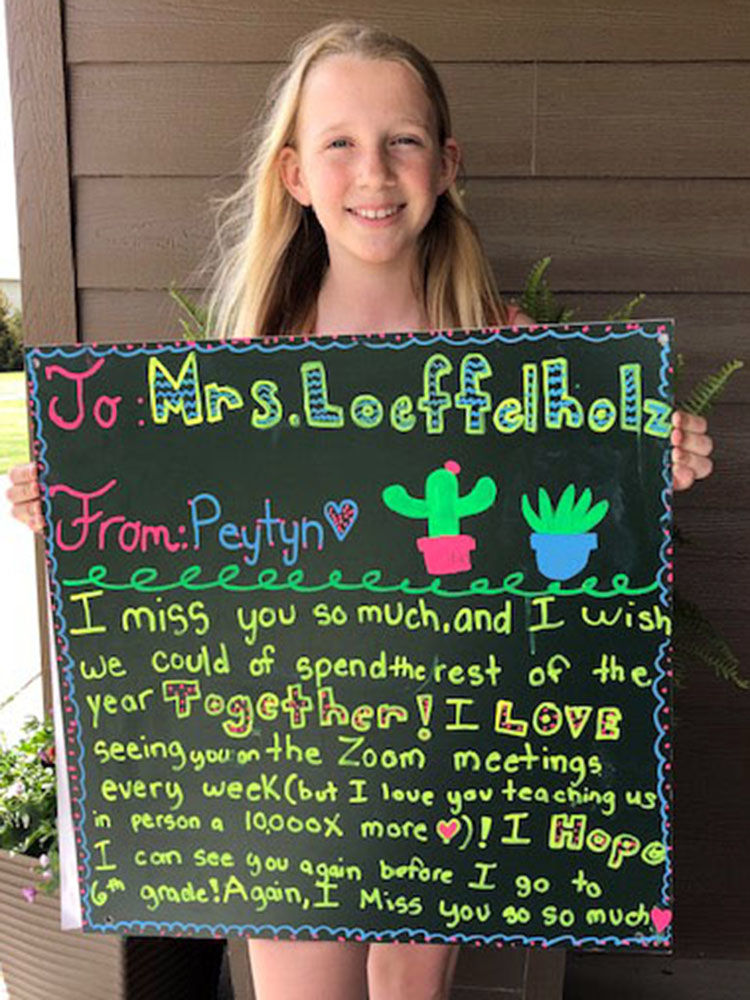 To: Mrs. Loeffelholz
From: Peytyn
I miss you so much, and I wish
we could of spend the rest of the
year Together! I LOVE
seeing you on the Zoom meetings
every week (but I love you teaching us
in person a 10,000X more ♥)! I Hope
I can see you again before I go to
6th grade! Again, I Miss you so so much ♥